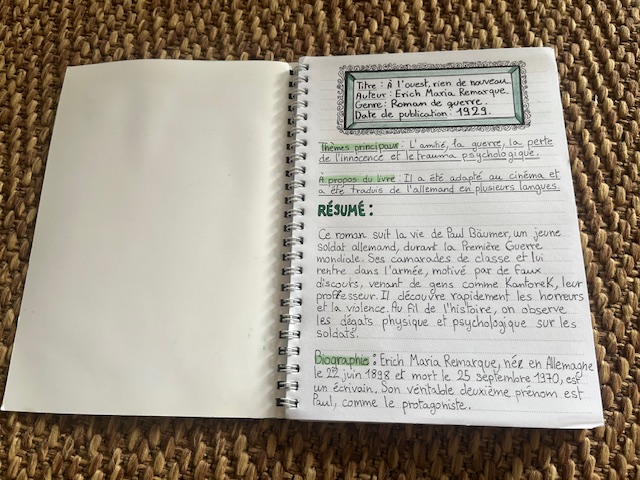 Titre : À l'ouest, rien de nouveau.
Auteur : Erich Maria Remarque.
Genre : Roman de guerre.
Date de publication : 1929.
Thèmes principaux : L'amitié, la guerre, la perte
de l'innocence et le trauma psychologique.
À propos du livre : Il a été adapté au cinéma et
a été traduis de l'allemand en plusieurs langues.
RÉSUMÉ :
Ce roman suit la vie de Paul Bäumer, un jeune
soldat allemand, durant la Première Guerre
mondiale. Ses camarades de classe et lui
rentre dans l'armée, motivé par de faux
discours, venant de gens comme Kantorek, leur
professeur. Il découvre rapidement les horreurs
et la violence. Au fil de l'histoire, on observe
les dégats physique et psychologique sur les
soldats.
Biographie : Erich Maria Remarque, née en Allemagne
le 22 juin 1898 et mort le 25 septembre 1970, est
un écrivain. Son véritable deuxième prénom est
Paul, comme le protagoniste.